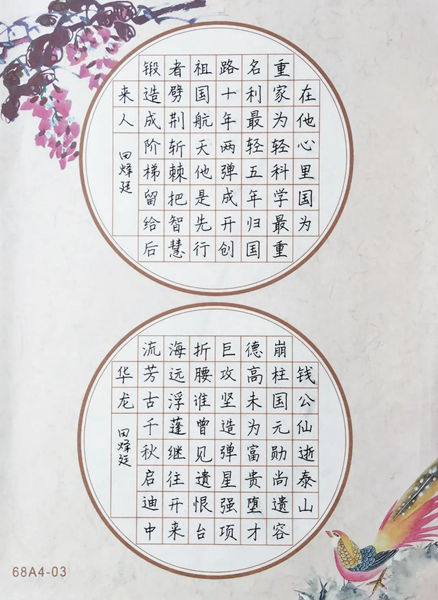 在他心里国为
重家为轻科学最重
名利最轻五年归国
路十年两弹成开创
祖国航天他是先行
者劈荆斩棘把智慧
锻造成阶梯留给后
来人
田烽廷
钱公仙逝泰山
崩柱国元勋尚遗容
德高未为富贵堕才
巨攻坚造弹星强项
折腰谁曾见遗恨台
海远浮蓬继往开来
流芳古千秋启迪中
华龙
田烽廷
68A4-03